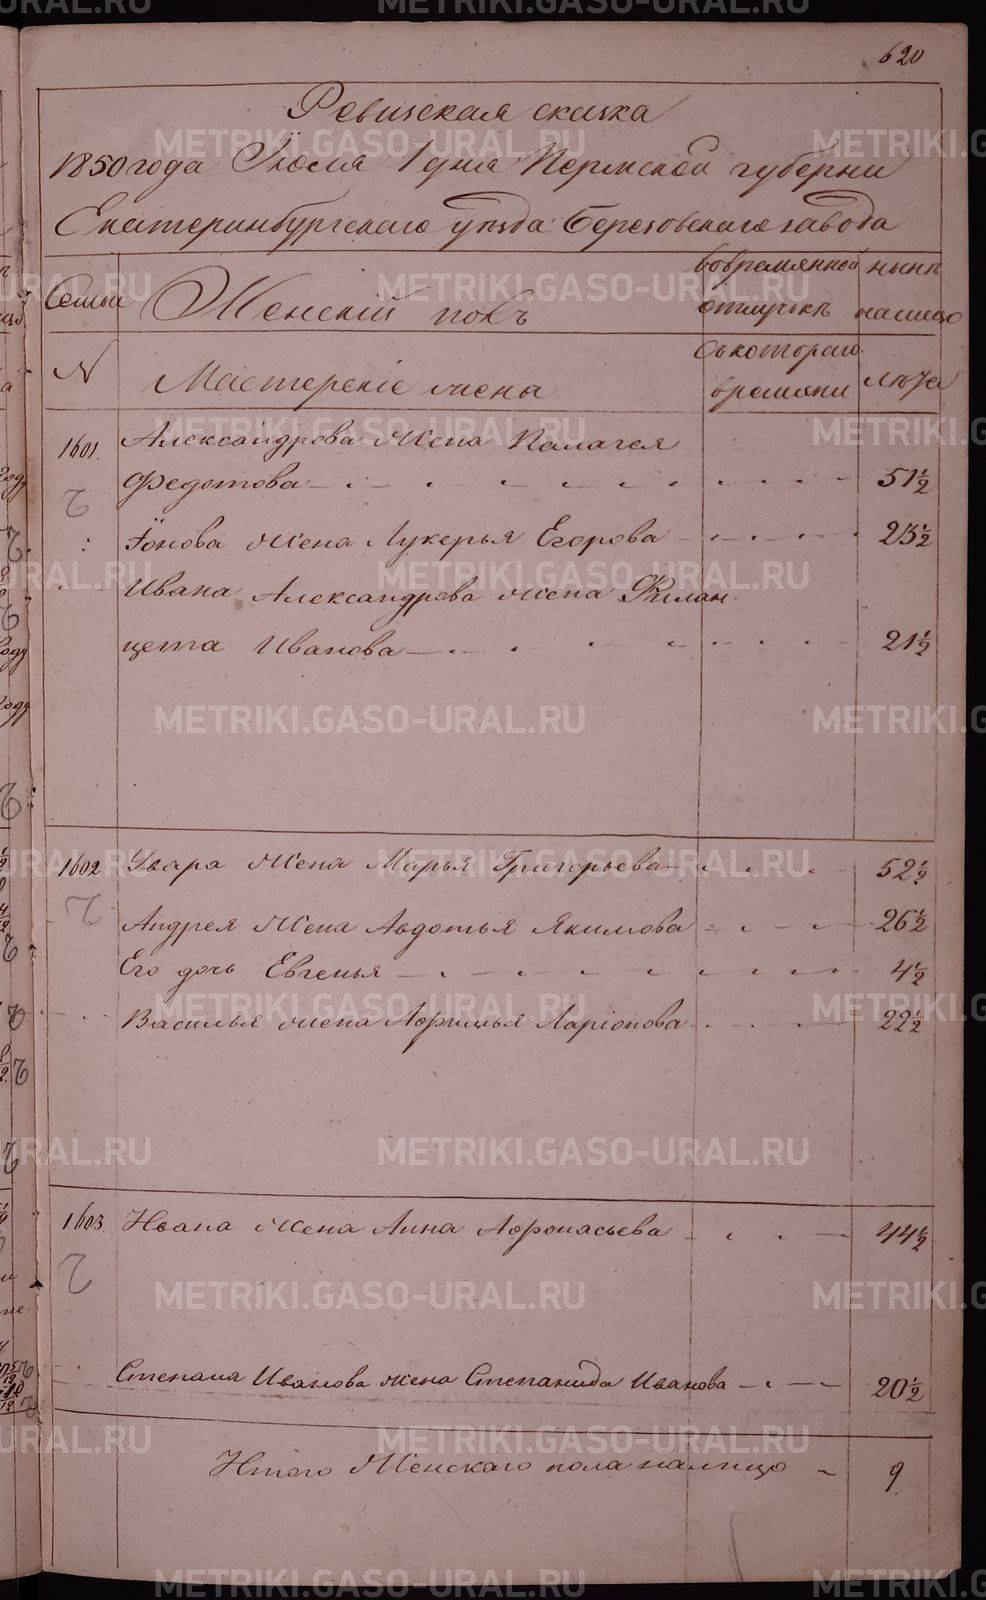 620
Ревизская сказка
1850 года Іюля 1 дня Пермской губерни
Екатеринбургскаго уѣзда Березовскаго завода
Семьи
Женскій полъ
вовремянной отлучкѣ
нынѣ налицо
№
Мастерскіе жены
съ котораго времяни
лѣта
1601. Александрова жена Палагея
Федотова 51½
Іонова жена Лукерья Егорова 23½
Ивана Александрова жена Филан
цета Иванова 21½
1602 Увара жена Марья Григорьева 52½
Андрея жена Авдотья Якимова 26½
Его дочь Евгенья 4½
Василья жена Ларіонова 22½
1603 Ивана жена Анна Афонасьева 44½
Степана Иванова жена Степанида Иванова 20½
Итого Женскаго пола налицо 9
METRIKI.GASO-URAL.RU